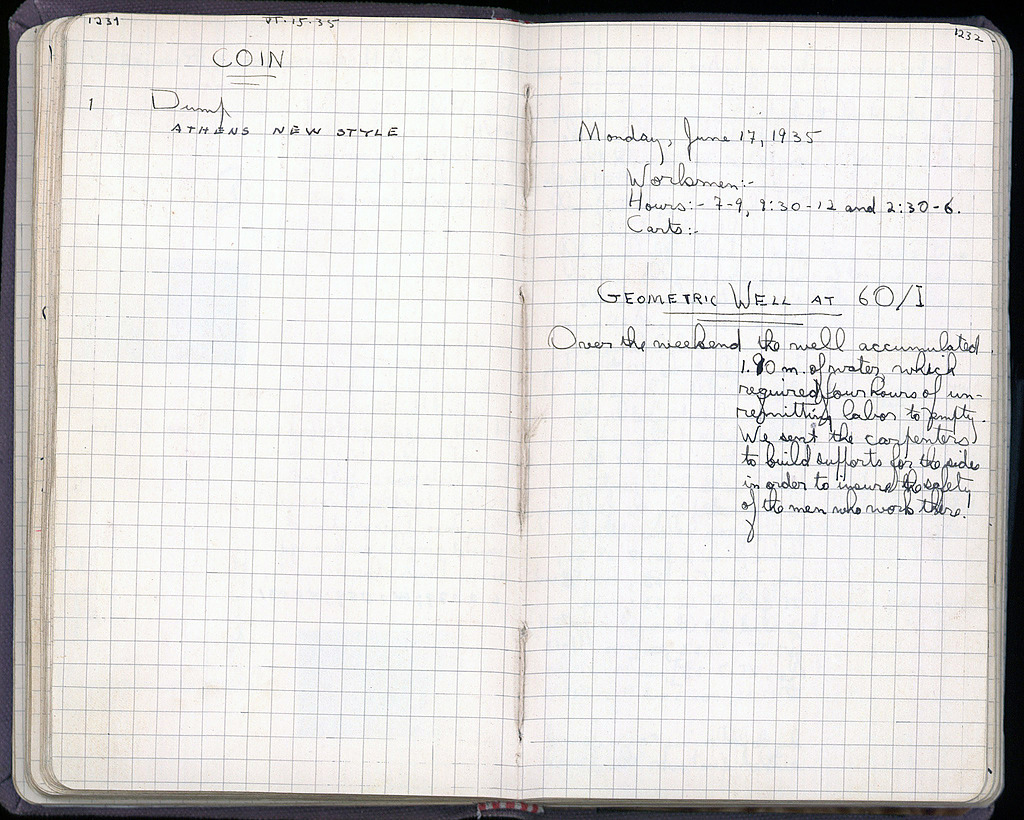 1231
VI-15-35
COIN
1 Dump
ATHENS NEW STYLE
1232
Monday, June 17, 1935
Workmen:-
Hours:- 7-9, 9:30-12 and 2:30-6.
Carts:-
GEOMETRIC WELL AT 60/I
Over the weekend the well accumulated
1.90 m. of water which
required four hours of un-
remitting labor to empty.
We sent the carpenters
to build supports for the sides
in order to insure the safety
of the men who work there.